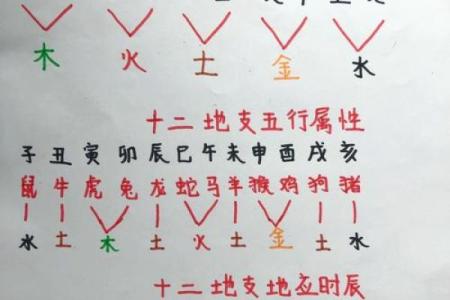 木 火 土 金 水
十二地支五行属性
子 丑 寅 卯 辰 巳 午 未 申 酉 戌 亥
鼠 牛 虎 兔 龙 蛇 马 羊 猴 鸡 狗 猪
水 土 木 土 火 土 金 土 水
十二地支地应时辰